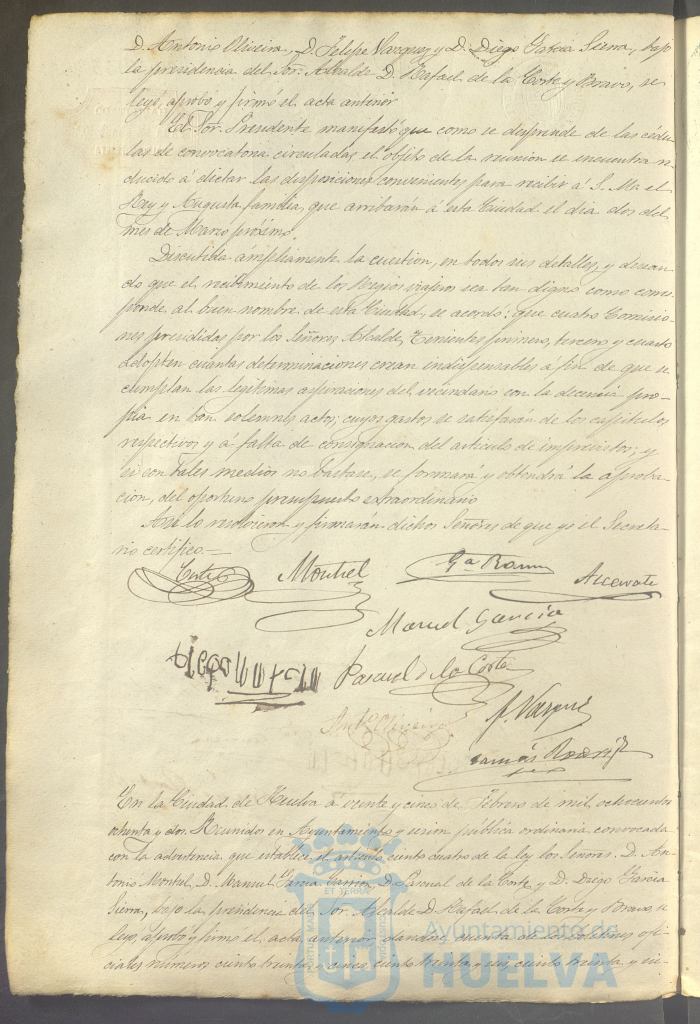 D. Antonio Oliveira, D. Felipe Vazquez y D. Diego Garcia Sierra, bajo
la presidencia del Sor. Alcalde D. Rafael de la Corte y Bravo, se
leyó, aprobó y firmó el acta anterior
El Sor. Presidente manifestó que como se desprende de las cédu
las de convocatoria circuladas, el objeto de la reunion se encuentra re
ducido á dictar las disposiciones convenientes para recibir á S. M. el
Rey y Augusta familia, que arribarán á esta Ciudad el dia dos del
mes de Marzo próximo.
Discutida ámpliamente la cuestion, en todos sus detalles, y desean
do que el recibimiento de los Regios viajeros sea tan digno como corres
ponde al buen nombre de esta Ciudad, se acordó: que cuatro Comisio
nes presididas por los Señores Alcalde, Tenientes primero, tercero y cuarto
adopten cuantas determinaciones crean indispensables á fin de que se
cumplan las legitimas aspiraciones del vecindario con la decencia pro
pia en tan solemnes actos; cuyos gastos se satisfarán de los capitulos
respectivos y á falta de consignacion del articulo de imprevistos; y
si con tales medios no bastase, se formará y obtendrá la aproba
cion, del oportuno presupuesto extraordinario
Asi lo resolvieron y firmarán dichos Señores de que yo el Secreta
rio certifico.=
Corte Montiel Ga. Ramos
Manuel Garcia
Pascual de la Corte
F. Vazquez
Anto. Oliveira
En la Ciudad de Huelva á veinte y cinco de Febrero de mil ochocientos
ochenta y dos. Reunidos en Ayuntamiento y sesion pública ordinaria convocada
con la advertencia que establece el articulo ciento cuatro de la ley los Señores D. An
tonio Montiel, D. Manuel Garcia Carrion, D. Pascual de la Corte y D. Diego Garcia
Sierra, bajo la presidencia del Sor. Alcalde D. Rafael de la Corte y Bravo, se
leyó, aprobó y firmó el acta anterior, dandose cuenta de los boletines ofi
ciales números ciento treinta y cinco, ciento treinta y seis, ciento treinta y sie
Ayuntamiento de
HUELVA